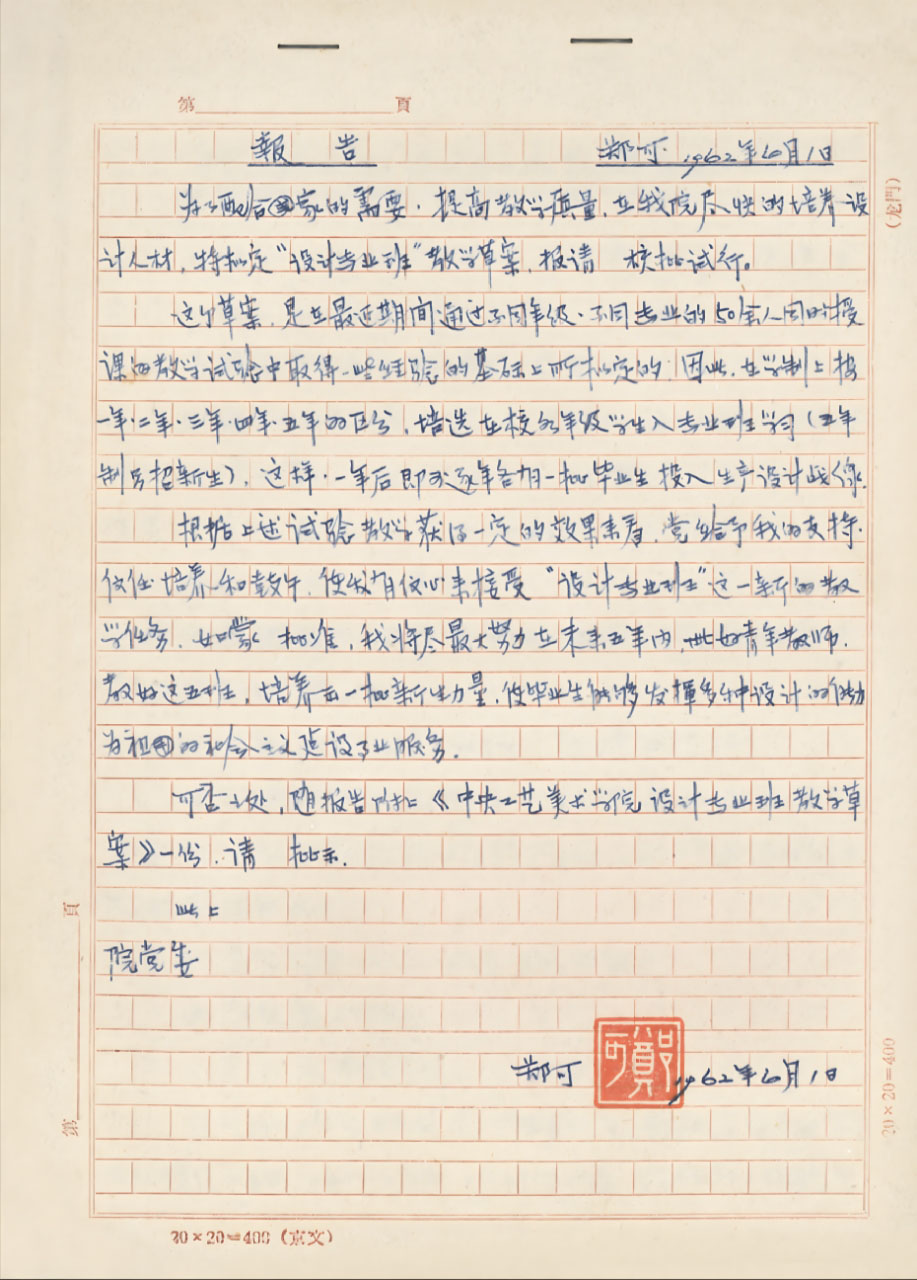 第 頁
報 告 郑可 1962年6月1日
为了配合国家的需要，提高教学质量，在我院尽快的培养设
计人材，特拟定“设计专业班”教学草案，报请 核批试行。
这个草案，是在最近期间通过不同年级、不同专业的50余人同时授
课的教学试验中取得一些经验的基础上所拟定的，因此，在学制上按
一年、二年、三年、四年、五年的区分，培选在校各年级学生入专业班学习（五年
制另招新生），这样，一年后即可逐年各有一批毕业生投入生产设计战线。
根据上述试验教学获得一定的效果来看，党给予我的支持、
信任、培养和鼓午，使我有信心来接受“设计专业班”这一新的教
学任务，如蒙 批准，我将尽最大努力在未来五年内， 好青年教师，
教好这五班，培养出一批新生力量，使毕业生能够发揮多种设计的能力
为祖国的社会主义建设事业服务。
可否之处，随报告附上《中央工艺美术学院设计专业班教学草
案》一份，请 批示。
此上
院党委
郑可 1962年6月1日
鄭可
第 頁
(龙門)
20×20=400
20×20=400 (京文)